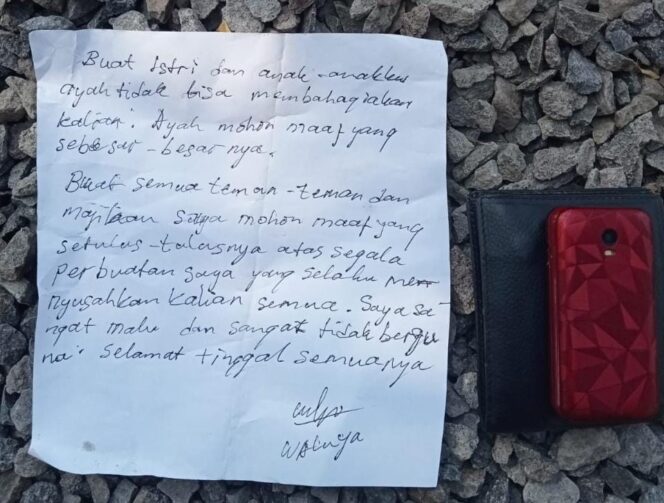 Buat istri dan anak-anakku
ayah tidak bisa membahagiakan
kalian. Ayah mohon maaf yang
sebesar-besarnya.
Buat semua teman-teman dan
saya mohon maaf yang
setulus-tulusnya atas segala
perbuatan saya yang selalu me
nyusahkan kalian semua. Saya sa
ngat malu dan sangat tidak bergu
na. Selamat tinggal semuanya